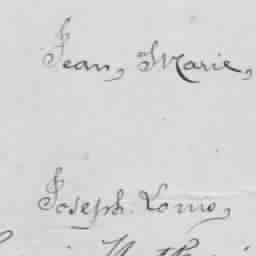 Jean, Marie,
Joseph. Lome,